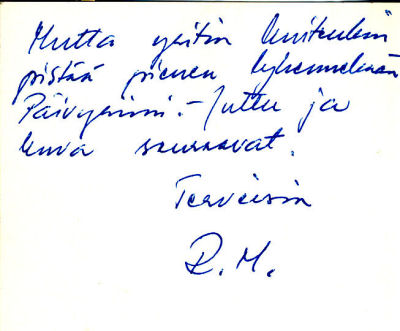 Mutta yritin kuitenkin
pistää pienen lyhennelmän
Juttu ja
kuva seuraavat.
Terveisin
R. M.